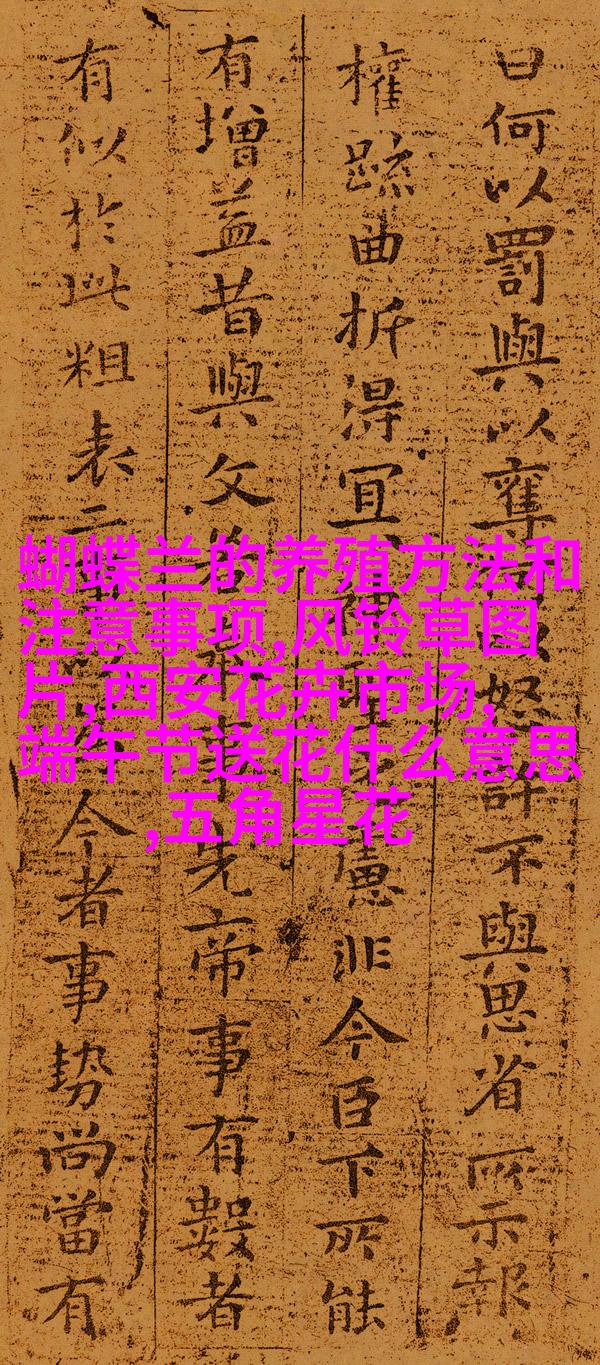 曰何以罰與以奪以怒許不與思省所示報
權疏曲折得冝慮非今臣下所能
有增益昔與文事先帝事有數者
有似於此粗表二今者事勢尚當有
蝴蝶兰的养殖方法和
注意事项,风铃草图
片,西安花卉市场,
端午节送花什么意思
,五角星花